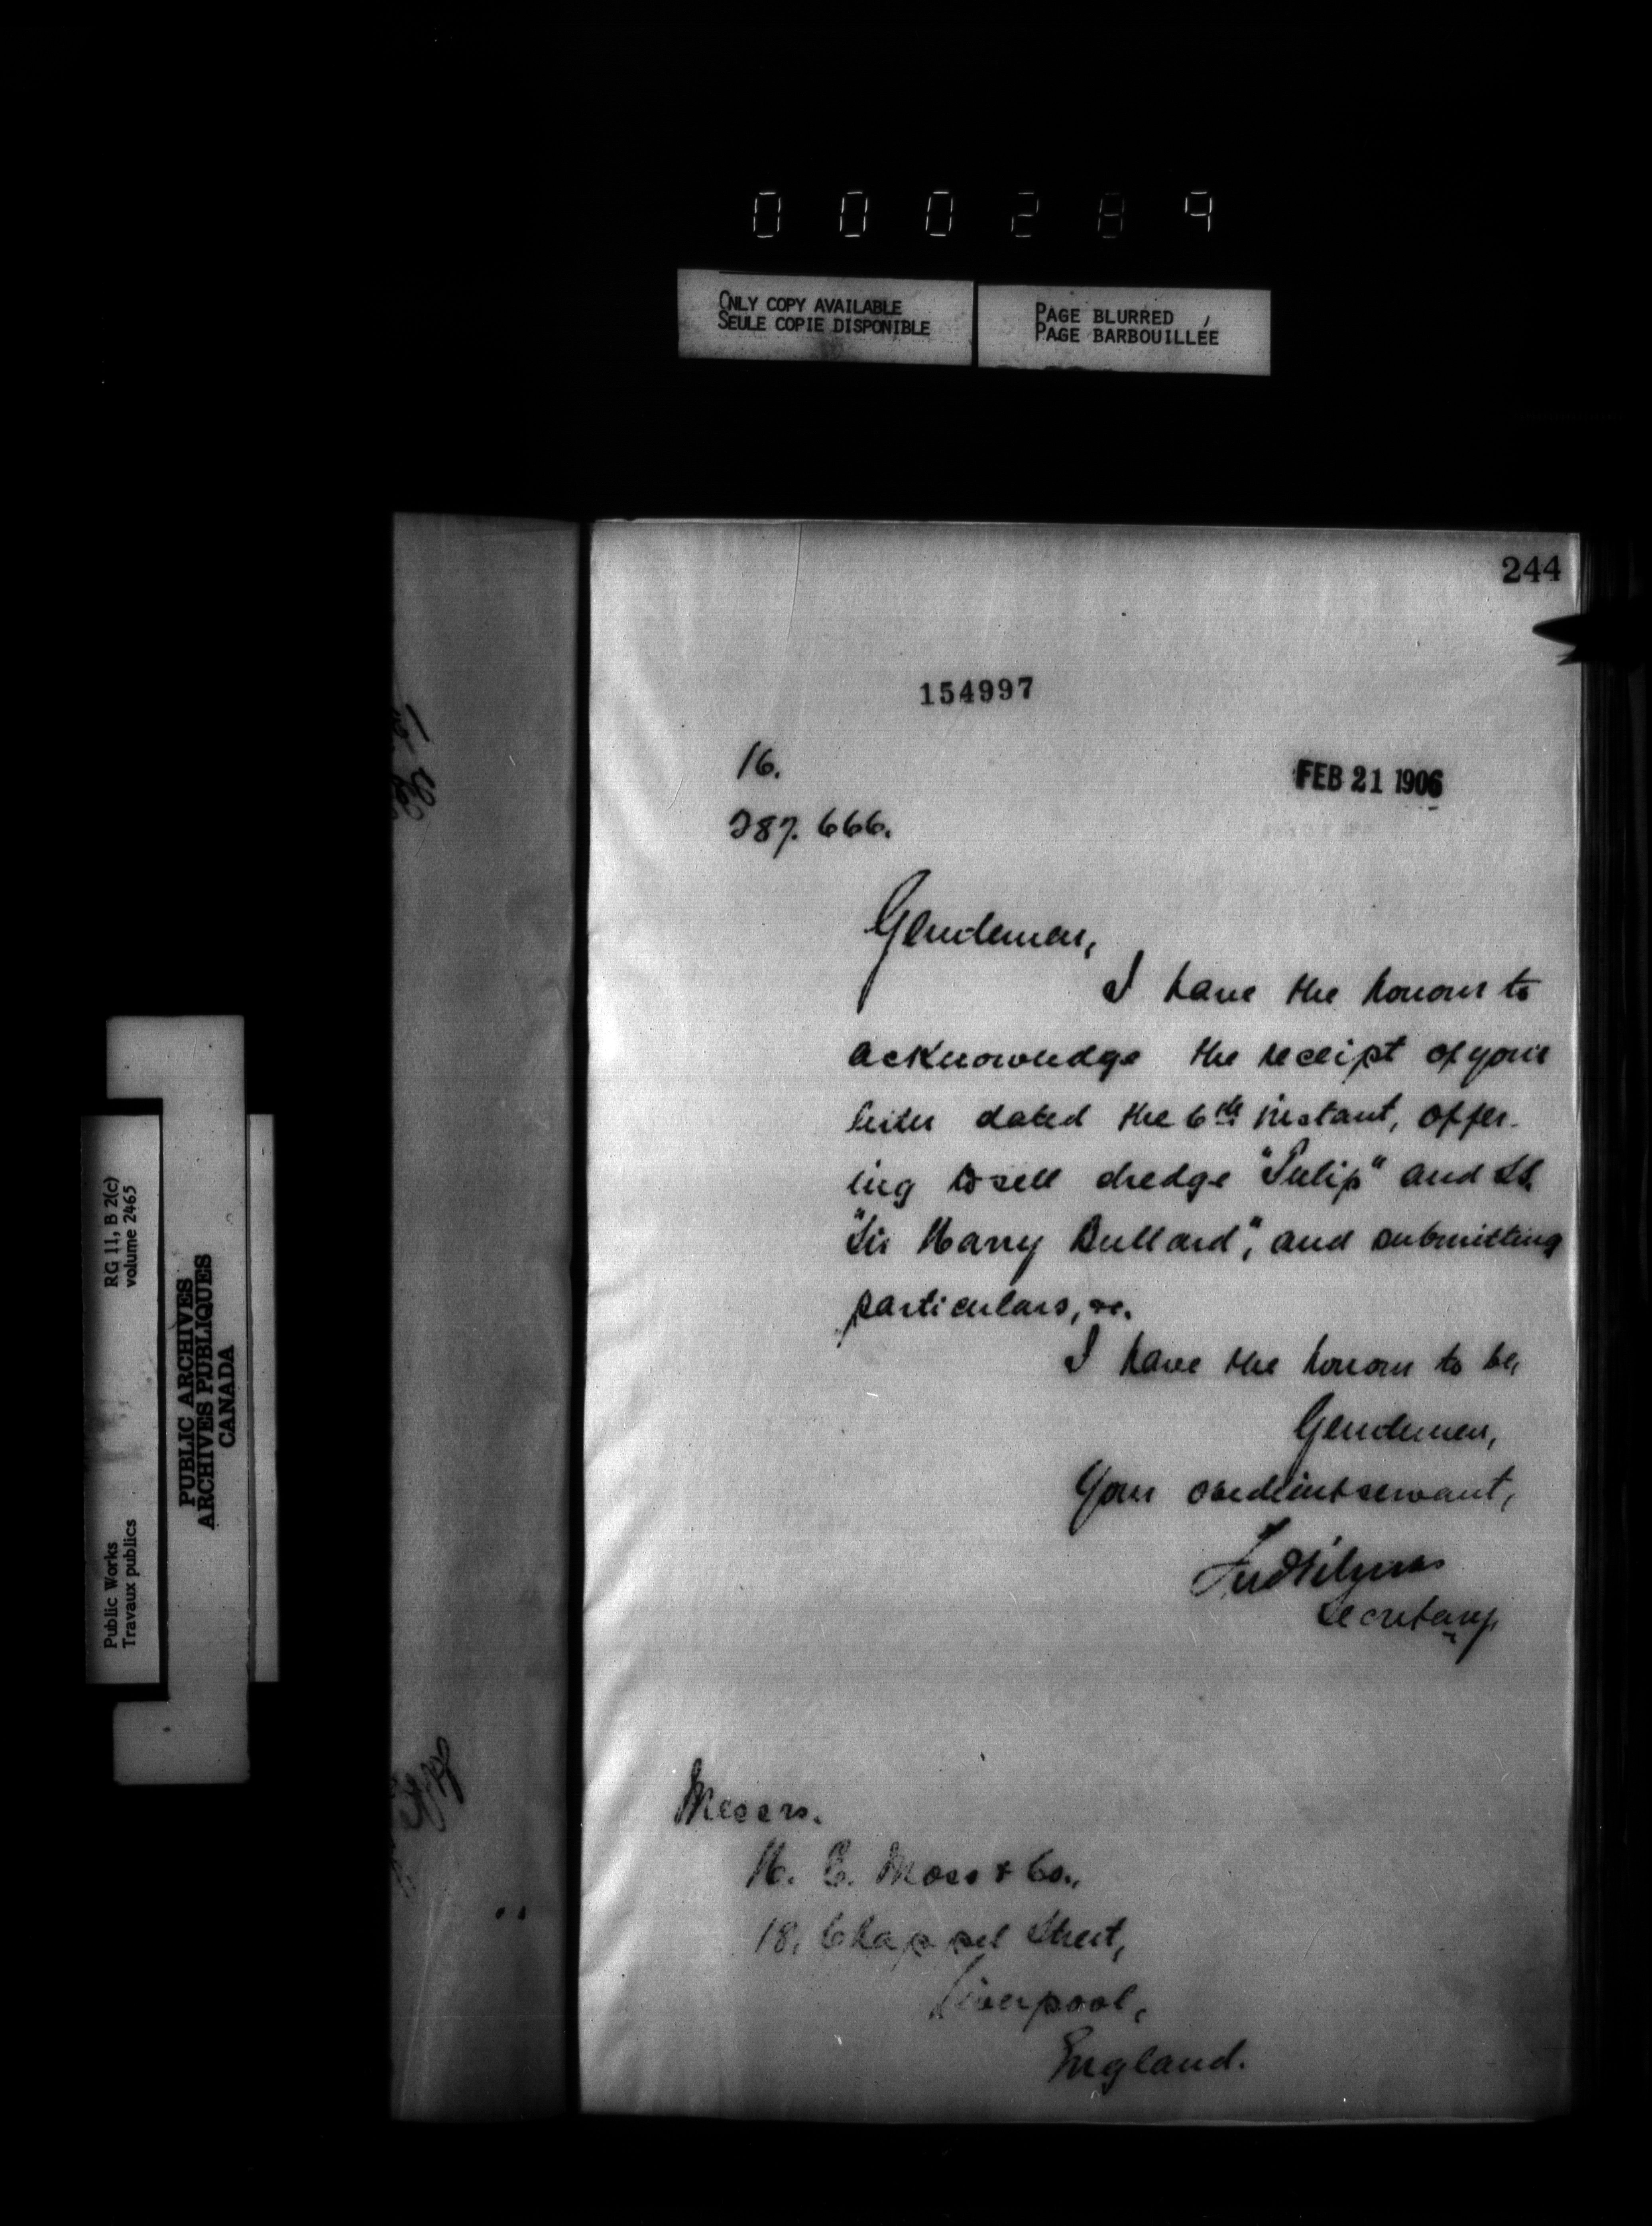 000289
ONLY COPY AVAILABLE
SEULE COPIE DISPONIBLE
PAGE BLURRED
PAGE BARBOUILLÉE
244
154997
16.
FEB 21 1906
287.666.
Gentlemen,
I have the honour to
acknowledge the receipt of your
letter dated the 6th instant, offer-
ing to sell dredge "Tulip" and
"Sir Harry Bullard", and submitting
particulars, &c.
I have the honour to be,
Gentlemen,
Your obedient servant,
Secretary
Messrs.
H. C. Moss & Co.,
18, Chappel Street,
Liverpool,
England.
RG 11, B 2(c)
volume 2465
Public Works
Travaux publics
PUBLIC ARCHIVES
ARCHIVES PUBLIQUES
CANADA